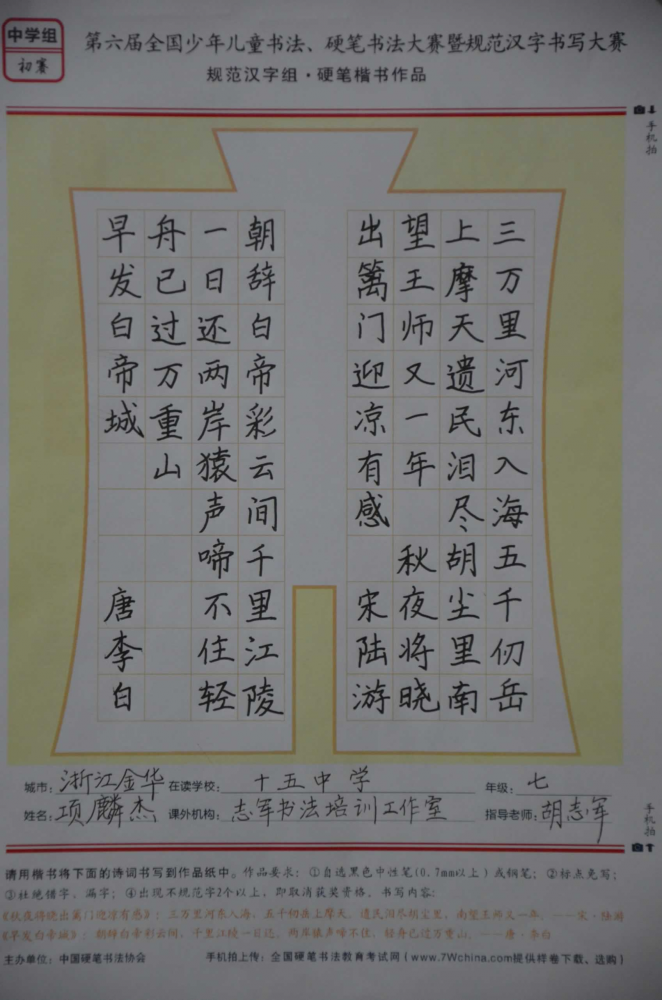 中学组
初赛
第六届全国少年儿童书法、硬笔书法大赛暨规范汉字书写大赛
规范汉字组·硬笔楷书作品
手机拍
三万里河东入海五千仞岳
上摩天遗民泪尽胡尘里南
望王师又一年 秋夜将晓
出篱门迎凉有感 宋陆游
朝辞白帝彩云间千里江陵
一日还两岸猿声啼不住轻
舟已过万重山
早发白帝城 唐李白
城市：浙江金华 在读学校：十五中学 年级：七
姓名：项麟杰 课外机构：志军书法培训工作室 指导老师：胡志军
手机拍
请用楷书将下面的诗词书写到作品纸中。作品要求：①自选黑色中性笔(0.7mm以上)或钢笔；②标点免写；
③杜绝错字，漏字；④出现不规范字2个以上，即取消获奖资格。书写内容：
《秋夜将晓出篱门迎凉有感》：三万里河东入海，五千仞岳上摩天。遗民泪尽胡尘里，南望王师又一年。——宋·陆游
《早发白帝城》：朝辞白帝彩云间，千里江陵一日还。两岸猿声啼不住，轻舟已过万重山。——唐·李白
主办单位：中国硬笔书法协会 手机拍上传：全国硬笔书法教育考试网（www.7Wchina.com提供样卷下载、选购）